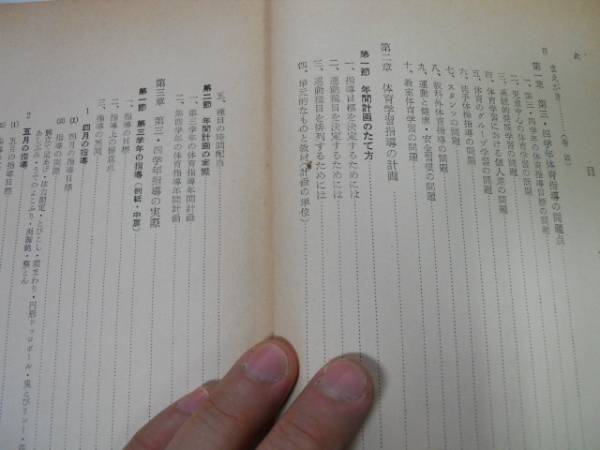 目
次
まえがき
第一章 第三・四学年体育指導の問題点
一、第三・四学年の体育指導目標の問題
二、児童中心の体育学習の問題
三、系統的発展学習の問題
四、体育学習における個人差の問題
五、体育のグループ学習の問題
六、徒手体操指導の問題
七、スタンツの問題
八、教科外体育指導の問題
九、運動と健康・安全指導の問題
十、教室体育学習の問題
第二章 体育学習指導の計画
第一節 年間計画のたて方
一、指導目標を決定するためには
二、運動種目を決定するためには
三、運動種目を排列するためには
四、単元的なものと教材（計画の単位）
五、種目の時間配当
第二節 年間計画の実際
一、第三学年の体育指導年間計画
二、第四学年の体育指導年間計画
第三章 第三・四学年指導の実際
第一節 第三学年の指導
一、指導の目標
二、指導上の留意点
三、指導の展開
1 四月の指導
(1) 四月の指導目標
(2) 指導の実際
2 五月の指導
(1) 五月の指導目標